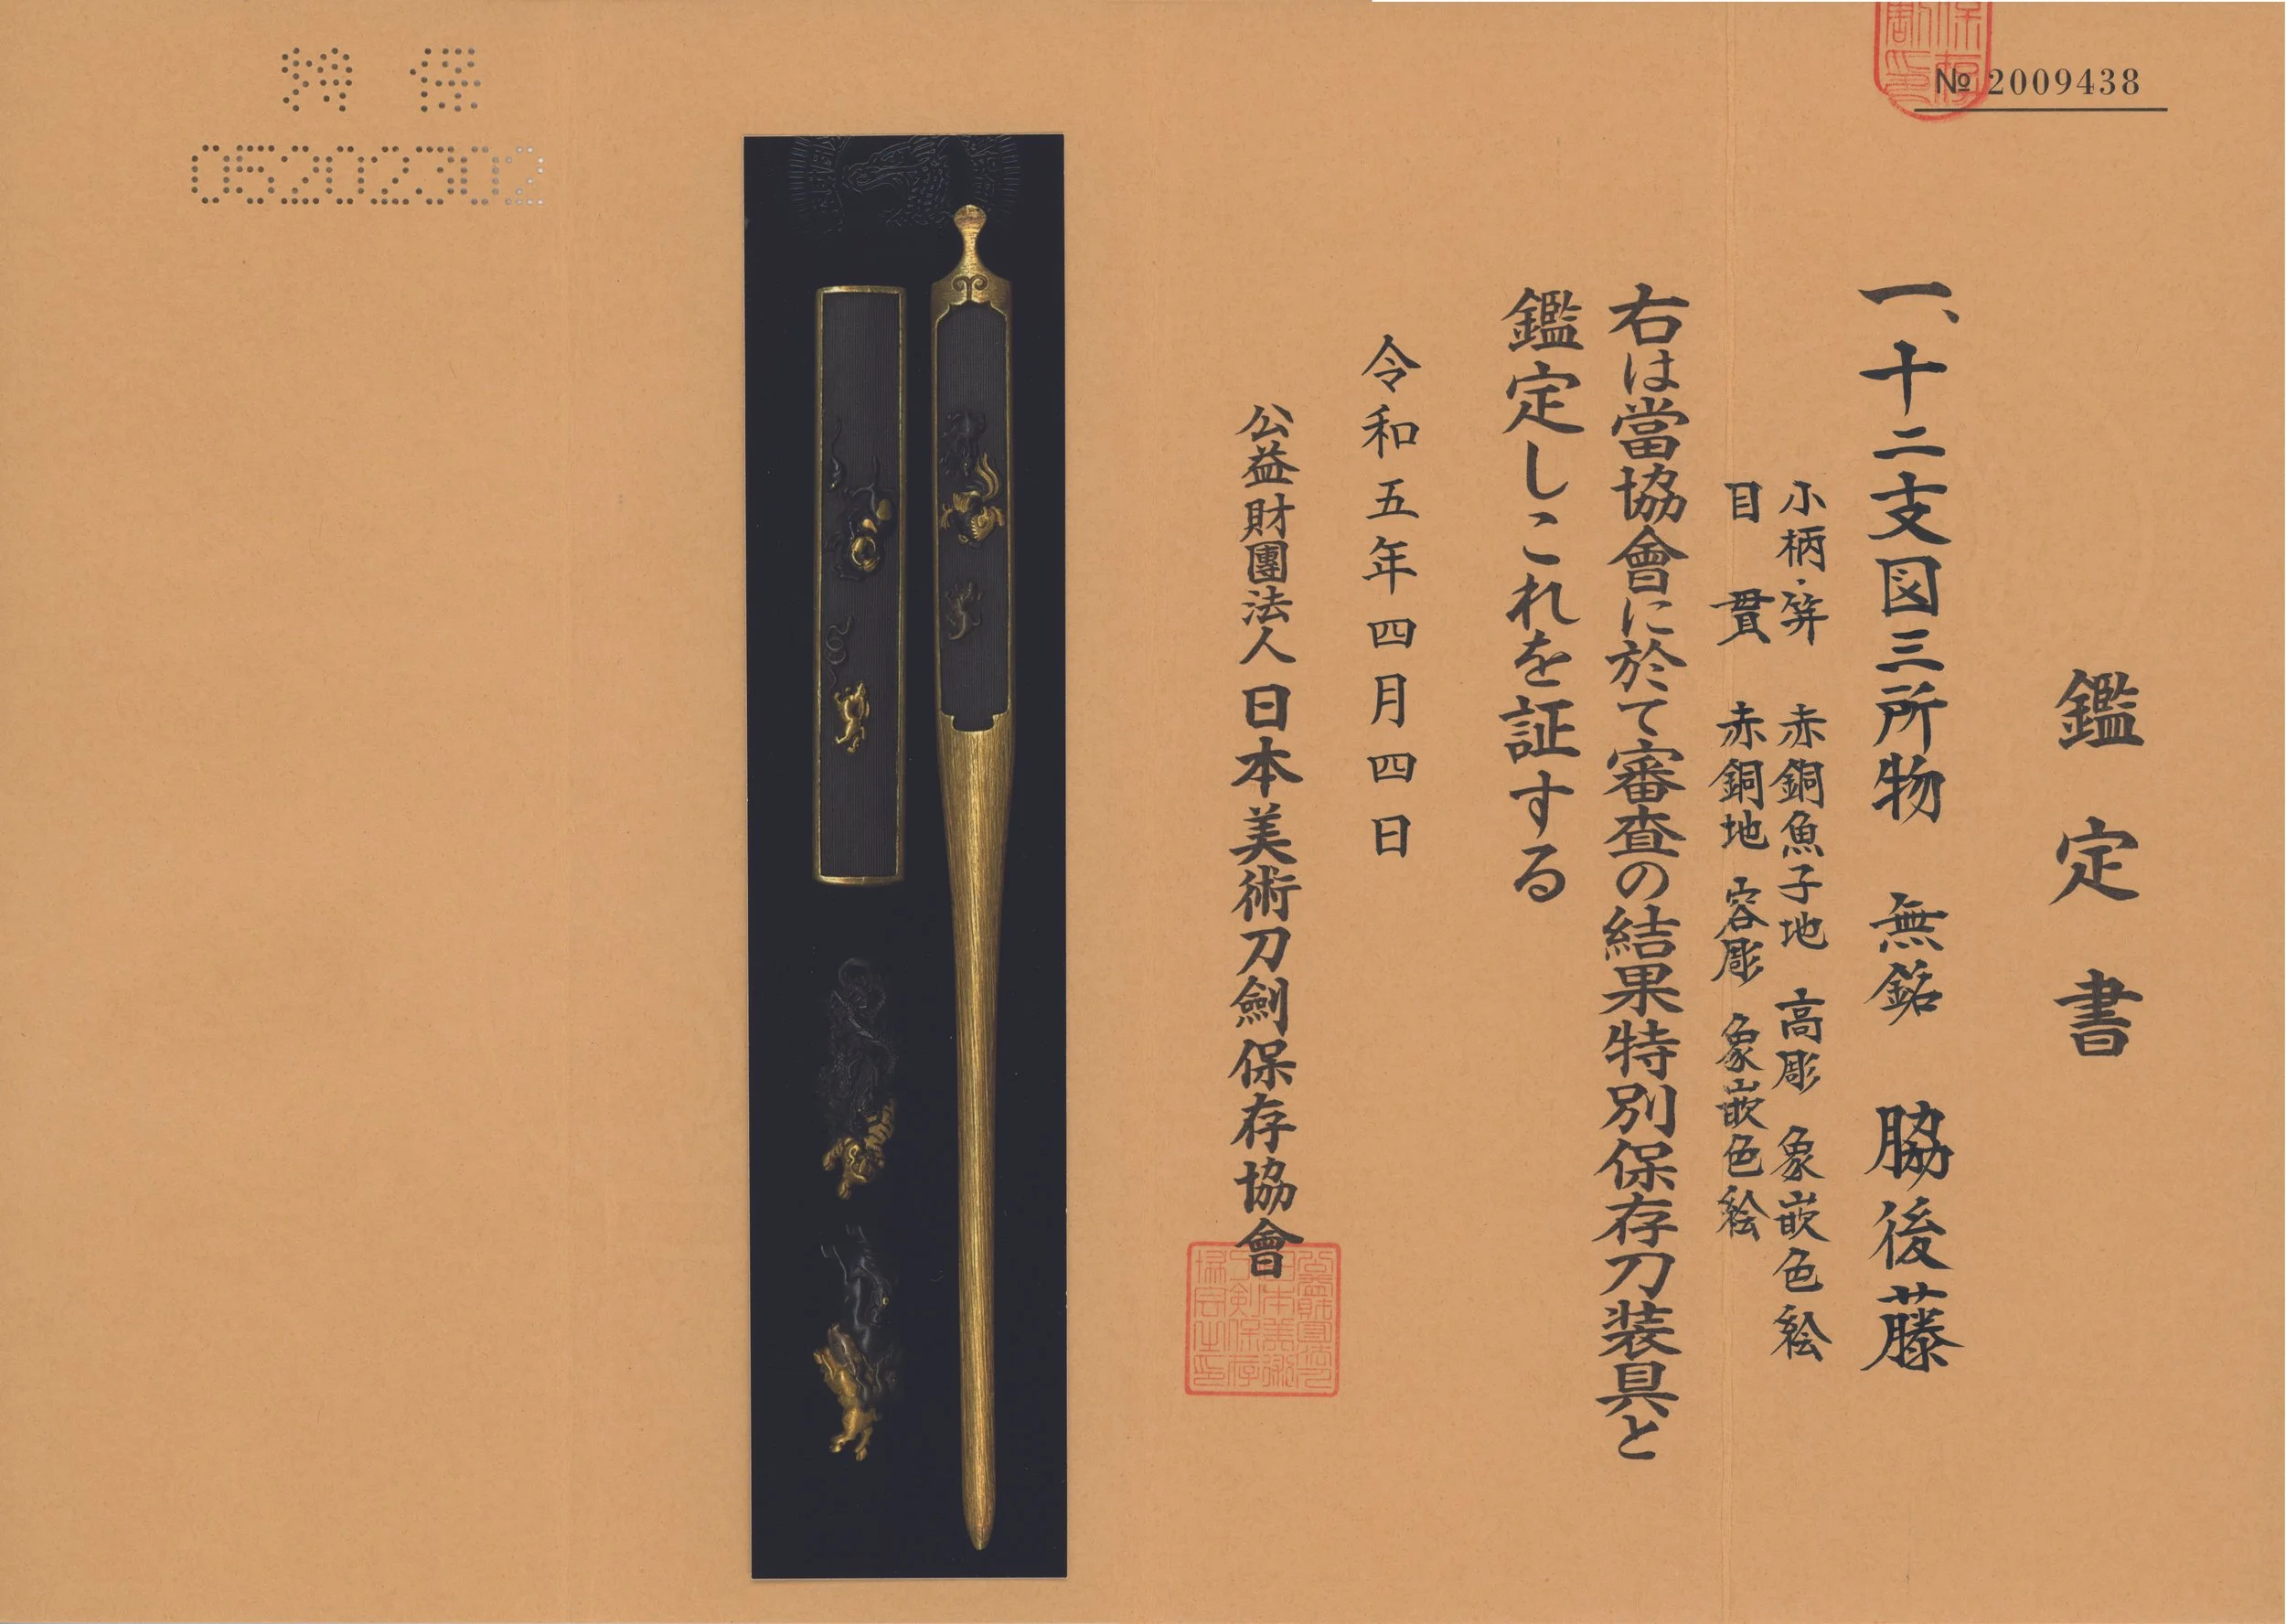 № 2009438
鑑定書
一、十二支図三所物 無銘 脇後藤
小柄・笄 赤銅魚子地 高彫 象嵌色絵
目貫 赤銅地 容彫 象嵌色絵
右は當協會に於て審査の結果特別保存刀装具と
鑑定しこれを証する
令和五年四月四日
公益財團法人日本美術刀劍保存協會
特保
05202302